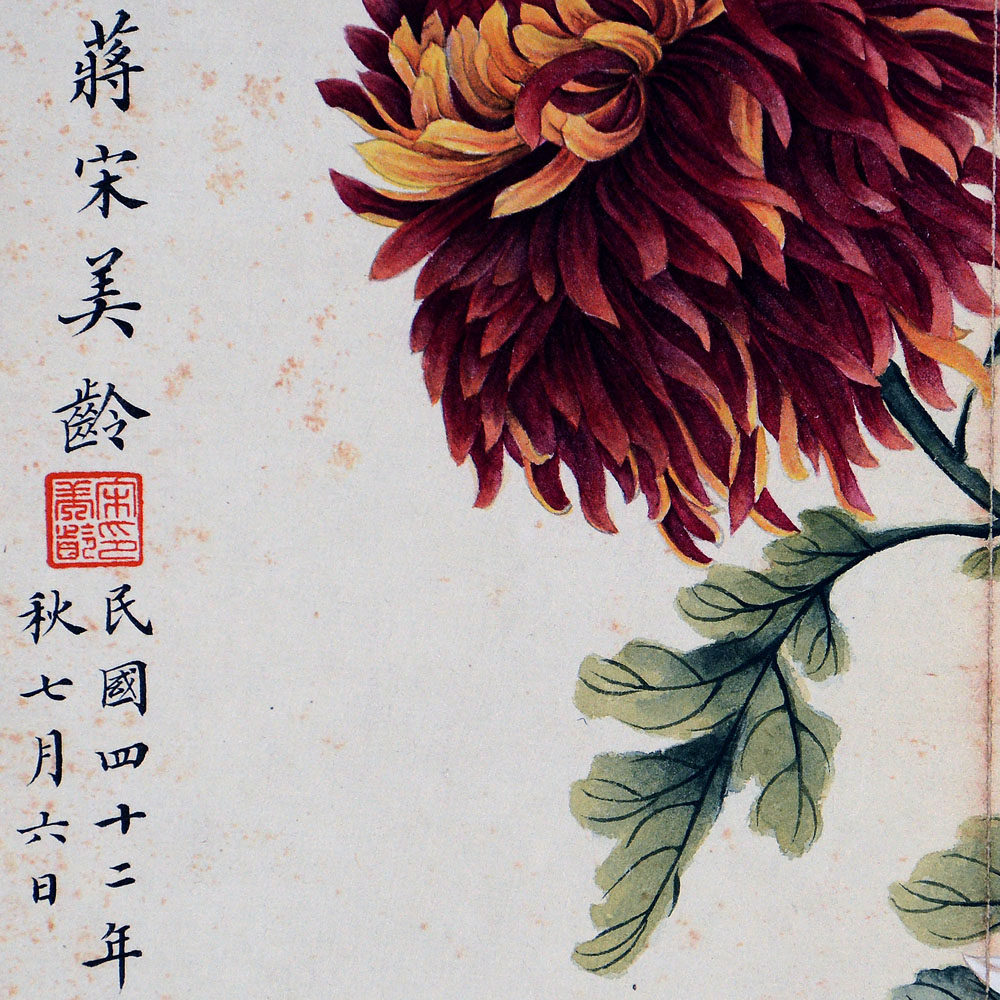 蔣宋美齡
宋美齡印
民國四十二年
秋七月六日